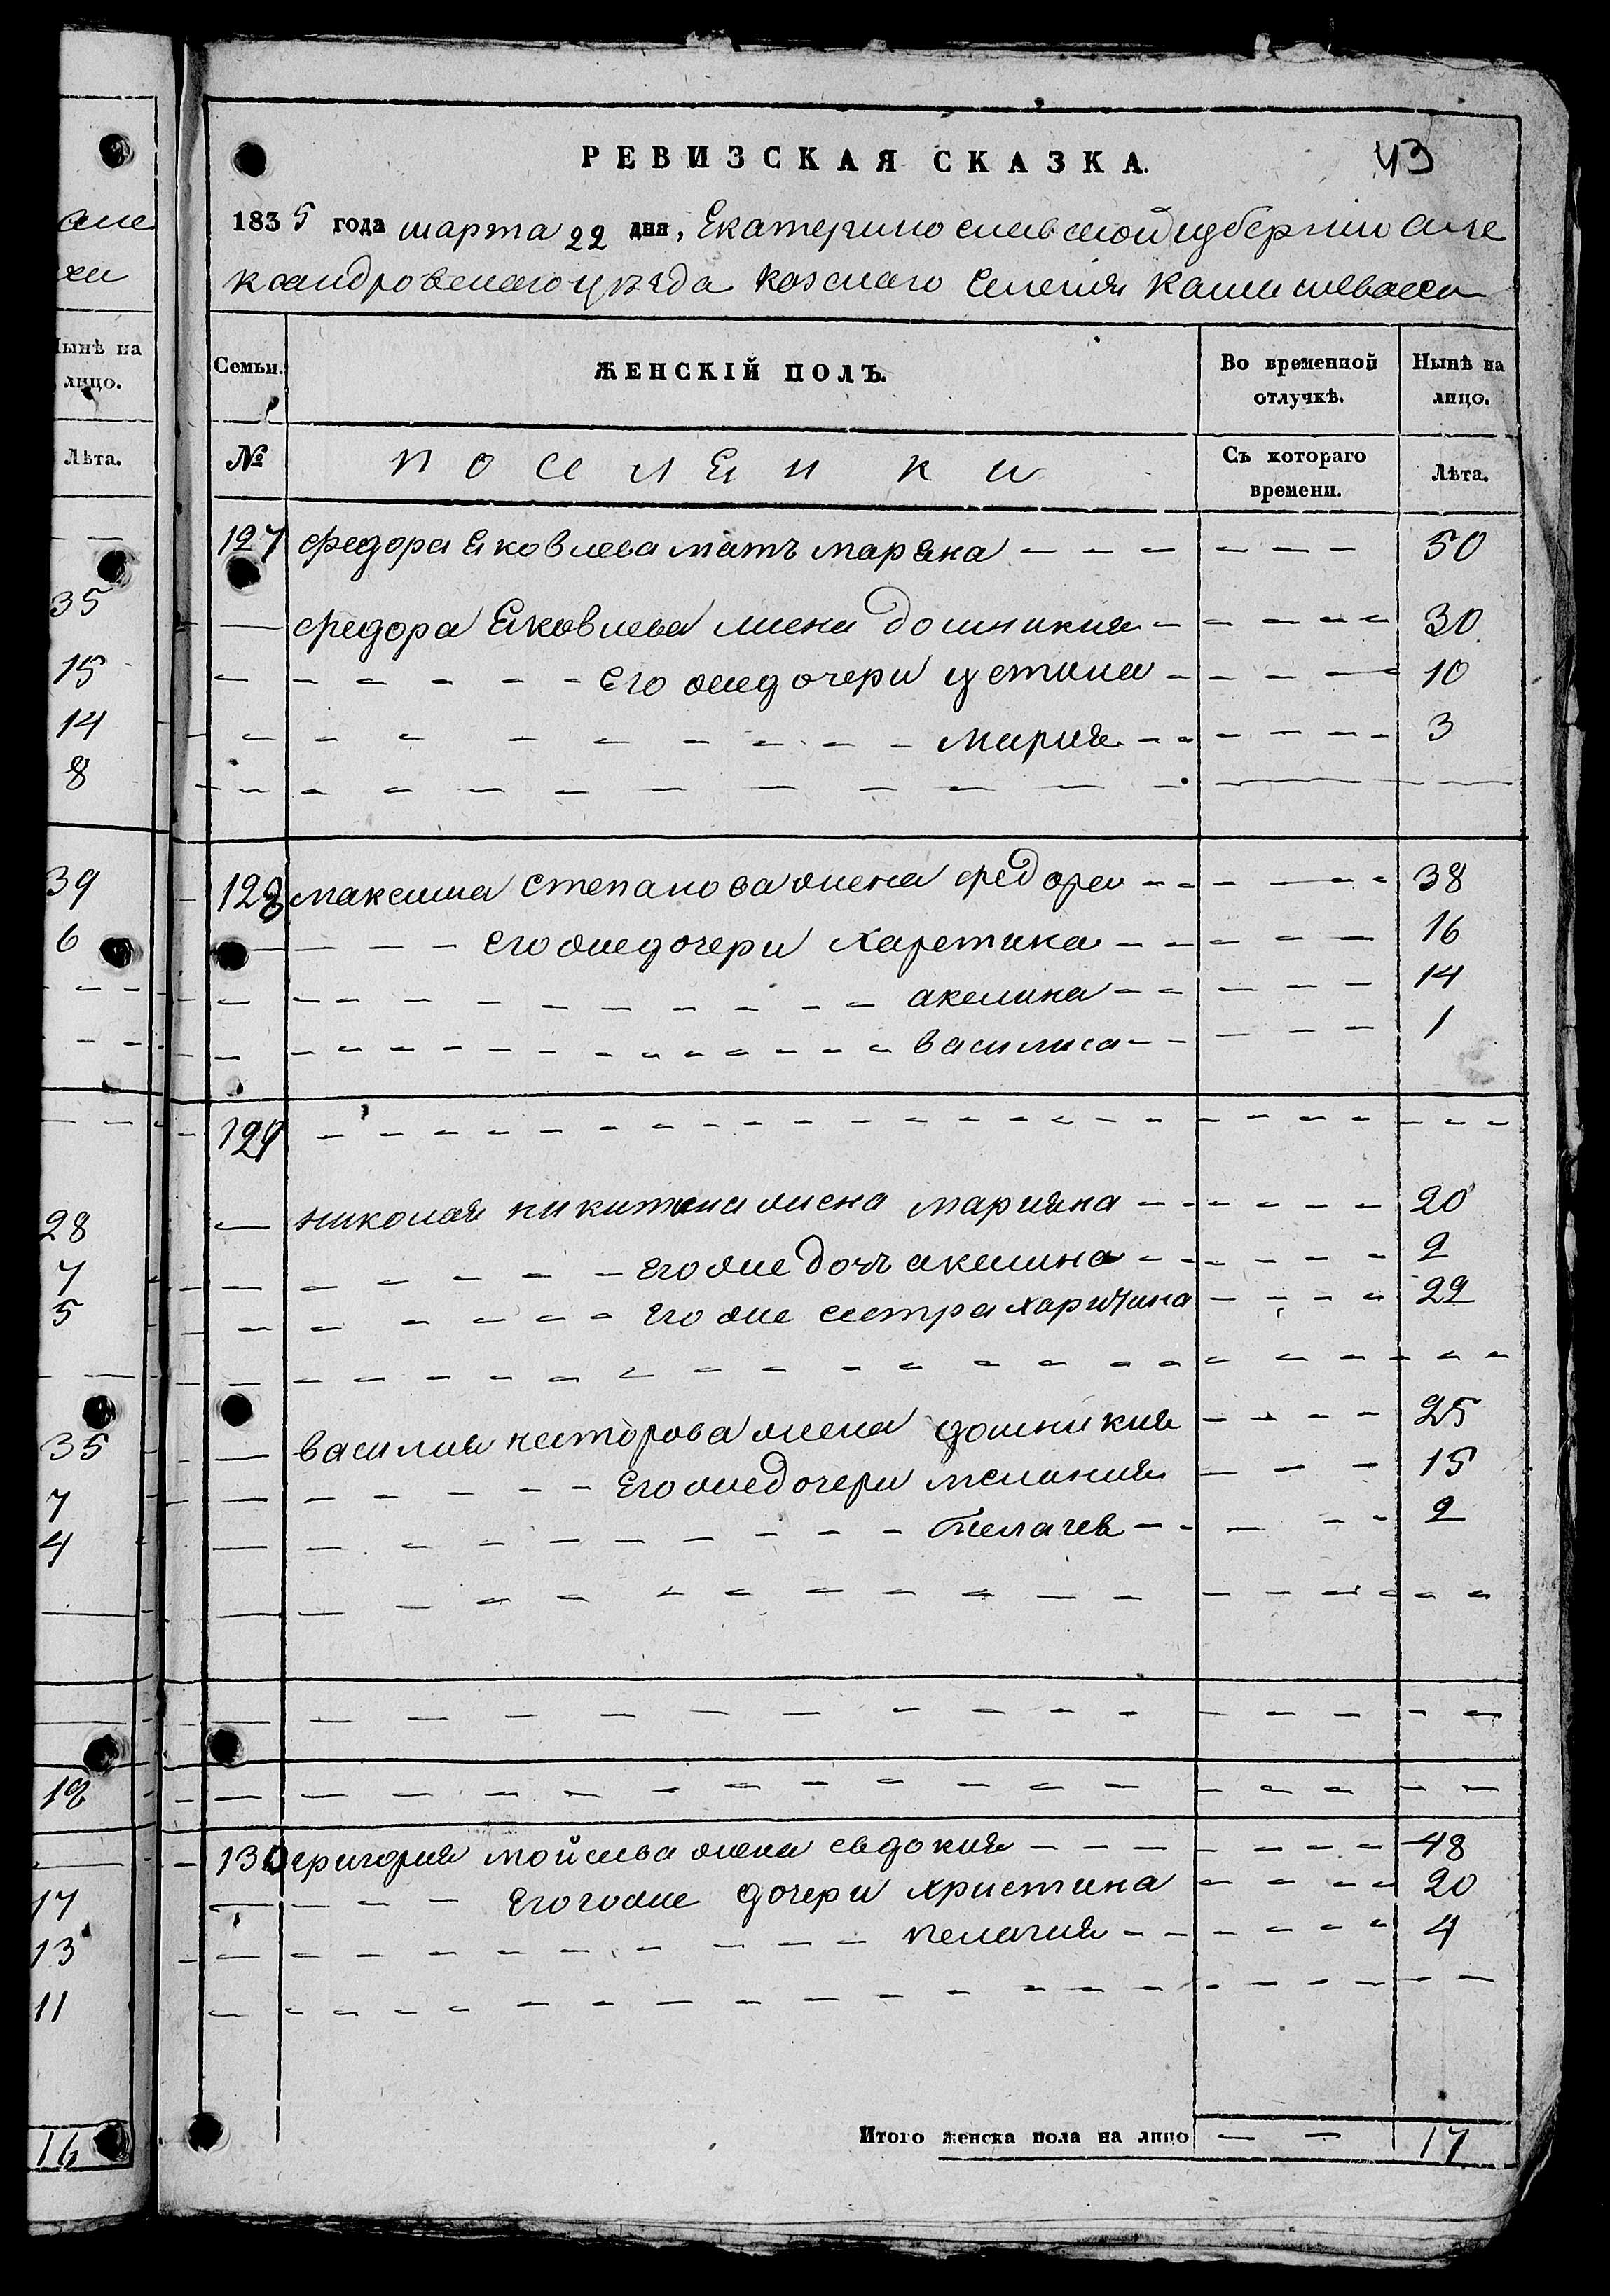 але
ки
Нынѣ на
лицо.
Лѣта.
35
15
14
8
39
6
28
7
5
35
7
4
12
17
13
11
16
РЕВИЗСКАЯ СКАЗКА.
43
1835 года марта 22 дня, Екатеринославской губернии Але
ксандровскаго уѣзда казенаго селения
Семьи.
ЖЕНСКІЙ ПОЛЪ.
Во временной
отлучкѣ.
Нынѣ на
лицо.
№
поселенки
Съ котораго
времени.
Лѣта.
127 Федора Яковлева мать маряна 50
Федора Яковлева жена Домникия 30
Его же дочери устина 10
мария 3
128 максима степанова жена федора 38
его же дочери харетина 16
акелина 14
василиса 1
129
николая никитина жена марияна 20
его же дочь акелина 2
его же сестра харитина 22
василия нестерова жена домникия 25
Его же дочери мелания 15
пелагея 2
130 григория мойсева жена евдокия 48
Егогоже дочери христина 20
пелагия 4
Итого женска пола на лицо 17